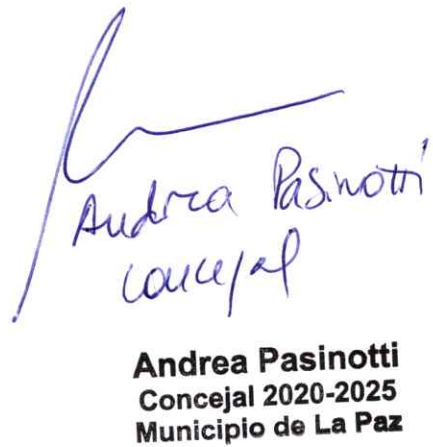 Andrea Pasinotti
concejal
Andrea Pasinotti
Concejal 2020-2025
Municipio de La Paz